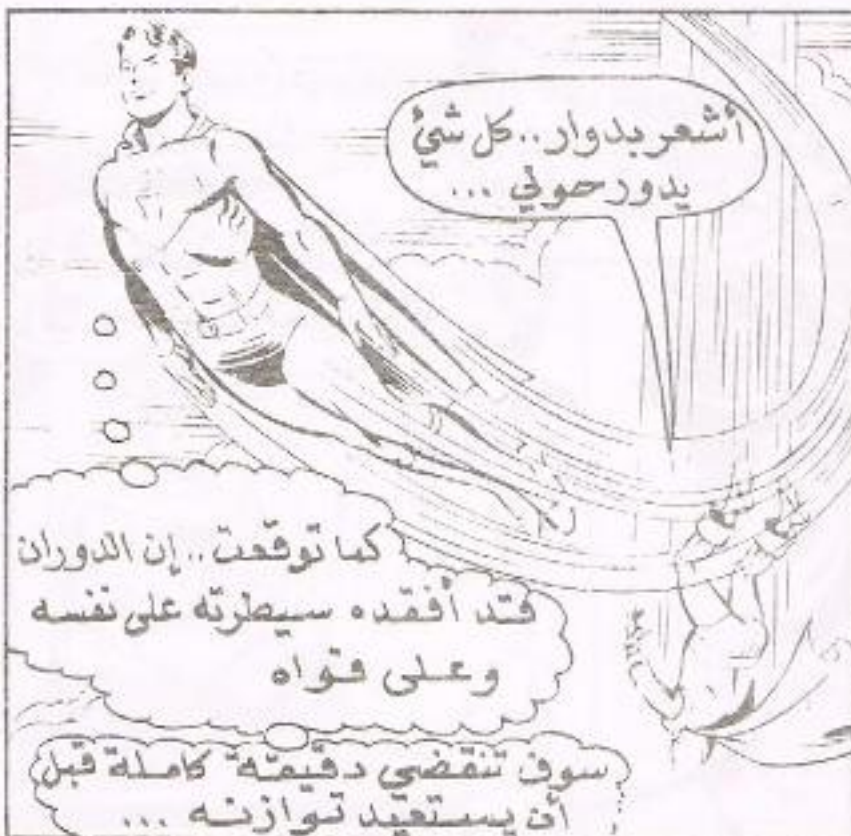 أشعر بدوار..كل شيئ
يدور حولي ...
كما توقعت..إن الدوران
قد أفقده سيطرته على نفسه
وعلى قواه
سوف تنقضي دقيقة كاملة قبل
أن يستعيد توازنه ...